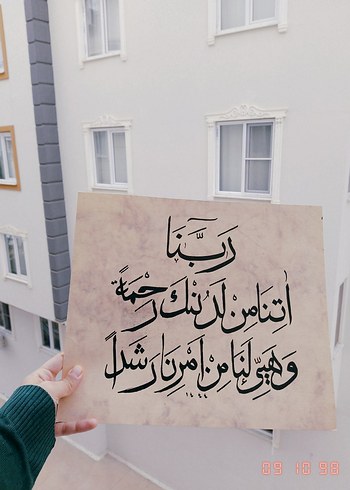 رَبَّنَا
اٰتِنَا مِنْ لَدُنْكَ رَحْمَةً
وَهَيِّئْ لَنَا مِنْ اَمْرِنَا رَشَداً
١٤٤٤
09 10 98